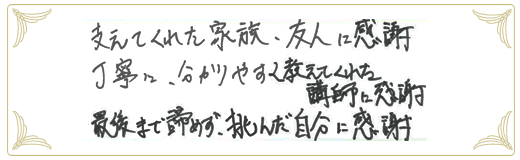 支えてくれた家族、友人に感謝
丁寧に、分かりやすく教えてくれた
講師に感謝
最後まで諦めず、挑んだ自分に感謝